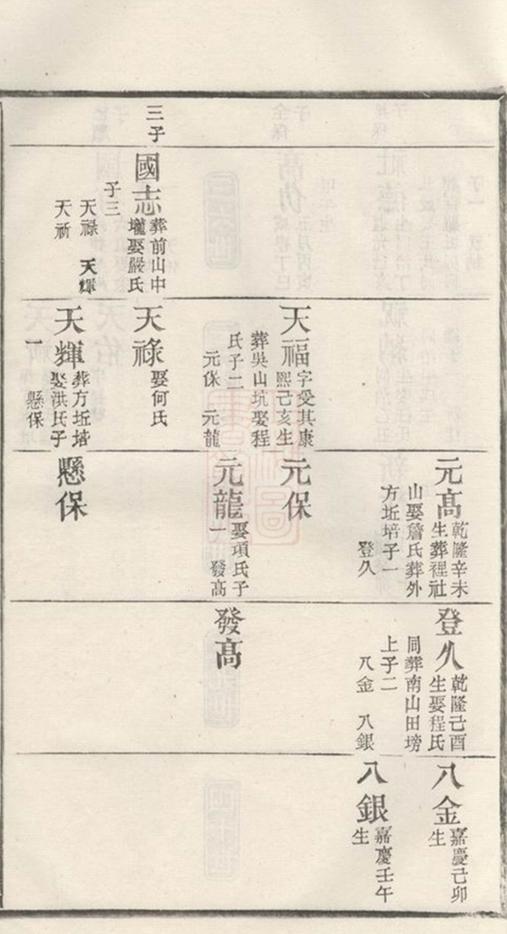 三子
國志 葬前山中
壠娶嚴氏
子三
天祿 天輝
天祈
天福 字受其康
熙己亥生
葬吳山坑娶程
氏子二
元保 元龍
天祿 娶何氏
天輝 葬方坵培
娶洪氏子
一
懸保
元高 乾隆辛未
生葬裡社
山娶詹氏葬外
方坵培子一
登久
元保
元龍 娶項氏子
一 發高
懸保
登久 乾隆己酉
生娶程氏
同葬南山田塝
上子二
八金 八銀
發高
八金 嘉慶己卯
生
八銀 嘉慶壬午
生